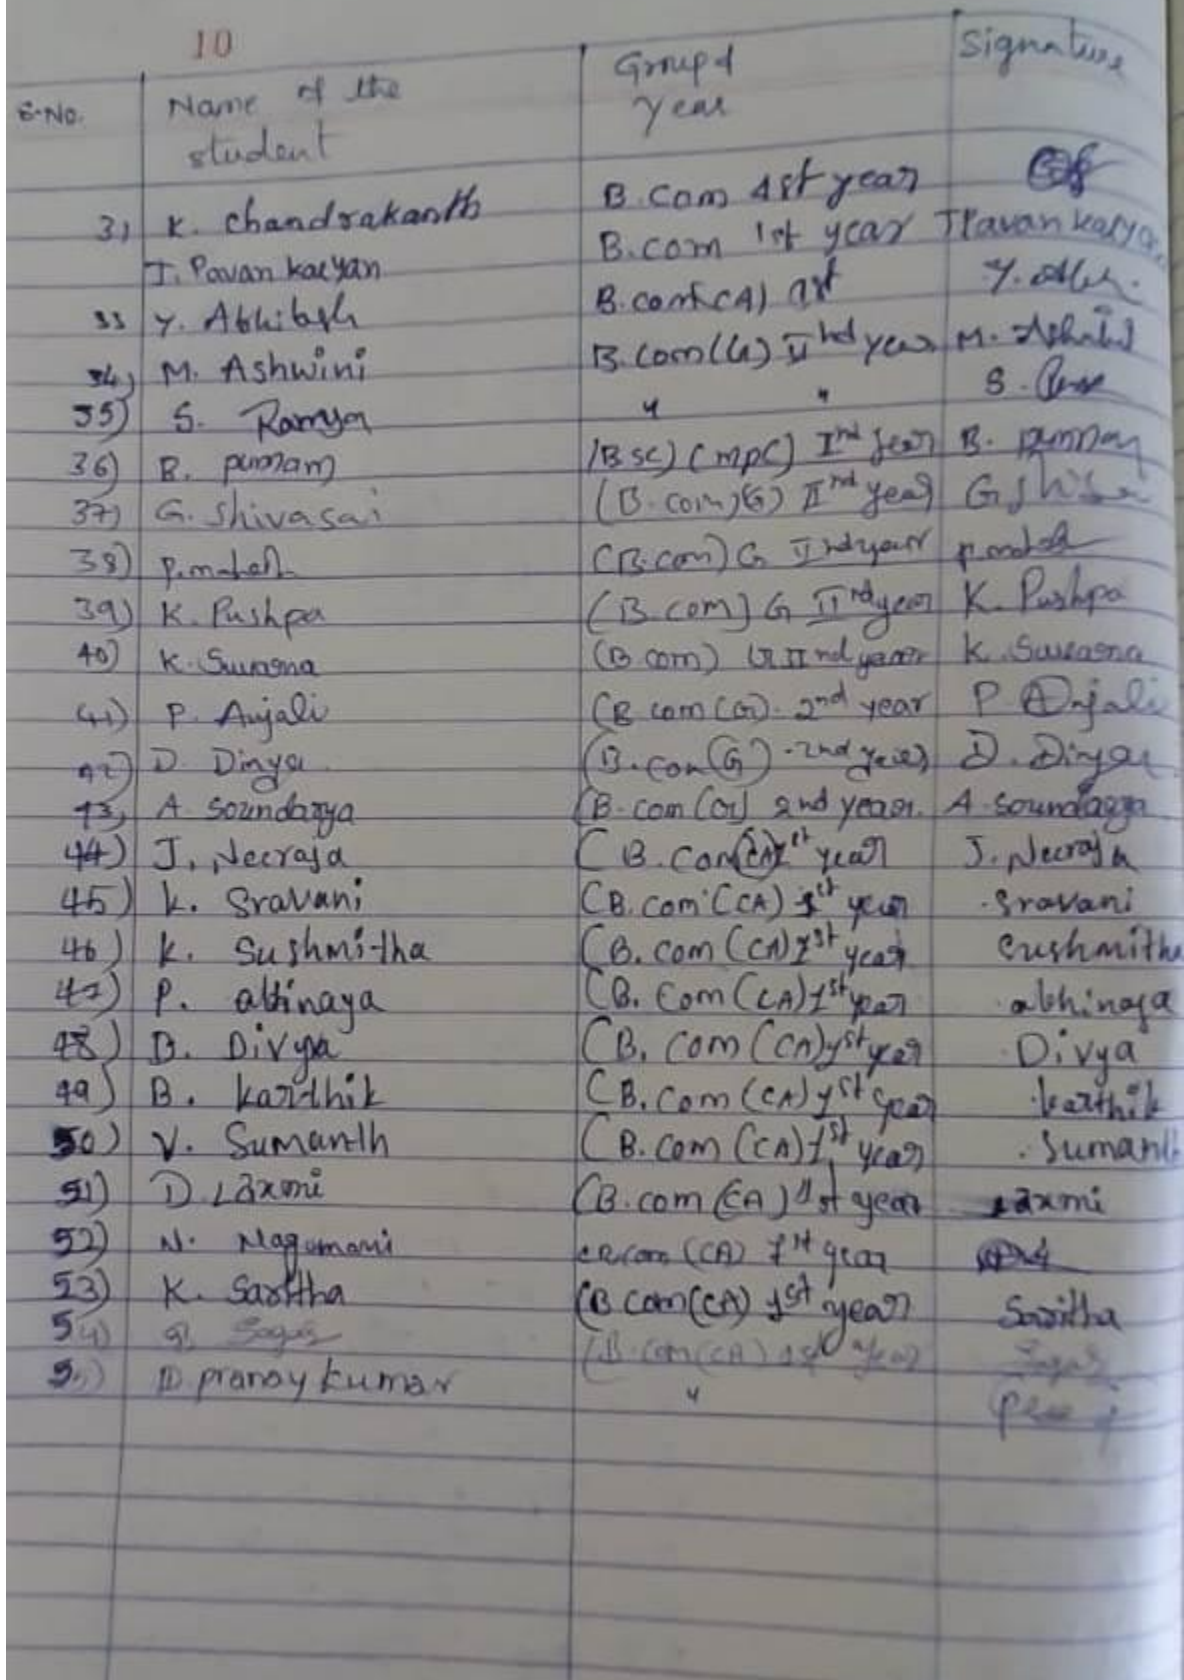 10
S.No. Name of the student Group & Year Signature
31 K. Chandrakanth B.Com 1st year
J. Pavan kalyan B.com 1st year J Pavan kalya
33 Y. Abhilash B.com(CA) 1st Y.
34) M. Ashwini B.Com(G) II nd year M. Ashwini
35) S. Ramya " " S.
36) B. punnam (BSC) (MPC) II nd year B. punnam
37) G. Shivasai (B.com)(G) II nd year G
38) P. (B.com) G II nd year P.
39) K. Pushpa (B.com) G II nd year K. Pushpa
40) K. Swarna (B.com) G II nd year K. Swarna
41) P. Anjali (B com (G). 2nd year P Anjali
42) D. Divya (B.com(G) - 2nd year) D. Divya
43) A. Soundarya (B.com (G) 2nd year. A. Soundarya
44) J. Neeraja (B.Com(CA) 1st year J. Neeraja
45) K. Sravani (B.com (CA) 1st year Sravani
46) K. Sushmitha (B.com (CA) 1st year Sushmitha
47) P. abhinaya (B.Com (CA) 1st year abhinaya
48) D. Divya (B.Com (CA) 1st year Divya
49) B. karthik (B.Com (CA) 1st year karthik
50) V. Sumanth (B.Com (CA) 1st year Sumanth
51) D. Laxmi (B.com (CA) 1st year Laxmi
52) N. Nagamani (B.com (CA) 1st year
53) K. Saritha (B com(CA) 1st year Saritha
54) Sagar (B.com(CA) 1st year Sagar
55) D pranay kumar "